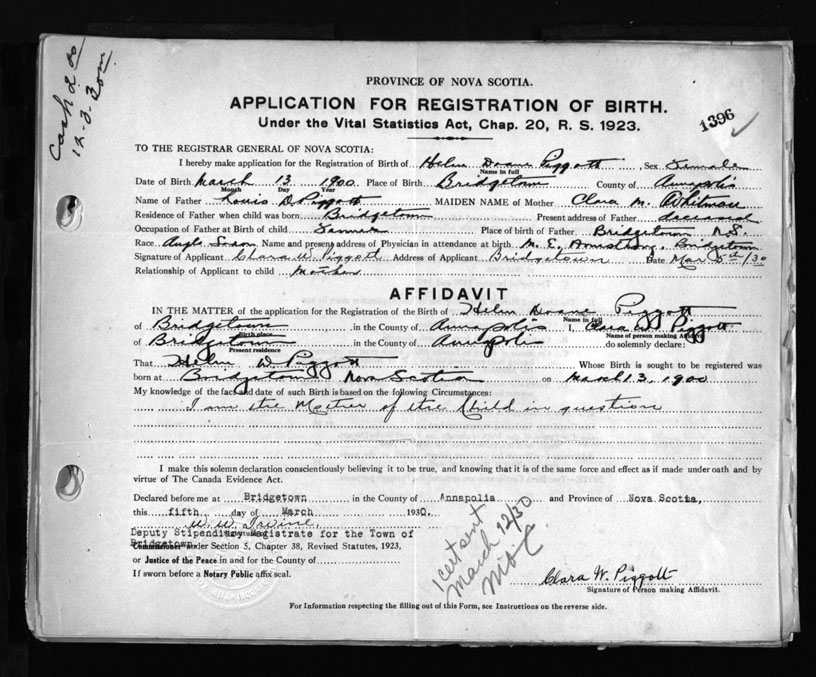 Cash 2.00
12-3-30
PROVINCE OF NOVA SCOTIA.
APPLICATION FOR REGISTRATION OF BIRTH.
Under the Vital Statistics Act, Chap. 20, R. S. 1923.
1396
TO THE REGISTRAR GENERAL OF NOVA SCOTIA:
I hereby make application for the Registration of Birth of Helen Doane Piggott, Sex Female
Name in full
Date of Birth March 13 1900 Place of Birth Bridgetown County of Annapolis
Month Day Year
Name of Father Louis D Piggott MAIDEN NAME of Mother Clara M. Whitman
Residence of Father when child was born Bridgetown Present address of Father deceased
Occupation of Father at Birth of child Farmer Place of birth of Father Bridgetown N.S.
Race Anglo Saxon Name and present address of Physician in attendance at birth M. E. Armstrong, Bridgetown
Signature of Applicant Clara W. Piggott Address of Applicant Bridgetown Date Mar 5th/30
Relationship of Applicant to child Mother
AFFIDAVIT
IN THE MATTER of the application for the Registration of the Birth of Helen Doane Piggott
Name in full
of Bridgetown in the County of Annapolis I, Clara W. Piggott
Birth place Name of person making Affidavit
of Bridgetown in the County of Annapolis do solemnly declare:
Present residence
That Helen D Piggott Whose Birth is sought to be registered was
born at Bridgetown Nova Scotia on March 13, 1900
My knowledge of the fact and date of such Birth is based on the following Circumstances:
I am the Mother of the Child in question
I make this solemn declaration conscientiously believing it to be true, and knowing that it is of the same force and effect as if made under oath and by
virtue of The Canada Evidence Act.
Declared before me at Bridgetown in the County of Annapolia and Province of Nova Scotia,
this fifth day of March 1930.
W. W. Irvine.
Deputy Stipendiary Magistrate for the Town of
Bridgetown
Commissioner under Section 5, Chapter 38, Revised Statutes, 1923,
or Justice of the Peace in and for the County of
If sworn before a Notary Public affix seal.
1 cert sent
March 12/30
Clara W. Piggott
Signature of Person making Affidavit.
For Information respecting the filling out of this Form, see Instructions on the reverse side.